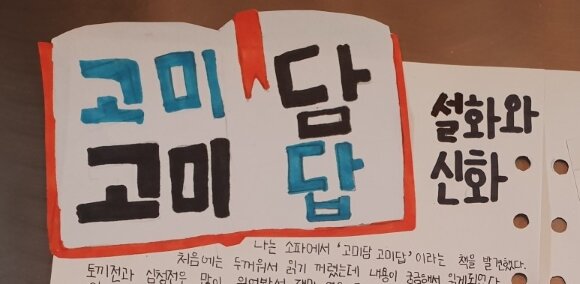 고미담
고미답
설화와
신화
나는 소파에서 '고미담 고미답' 이라는 책을 발견했다.
처음에는 두꺼워서 읽기 꺼렸는데 내용이 궁금해서 읽게되었다
토끼전과 심청전우 많이